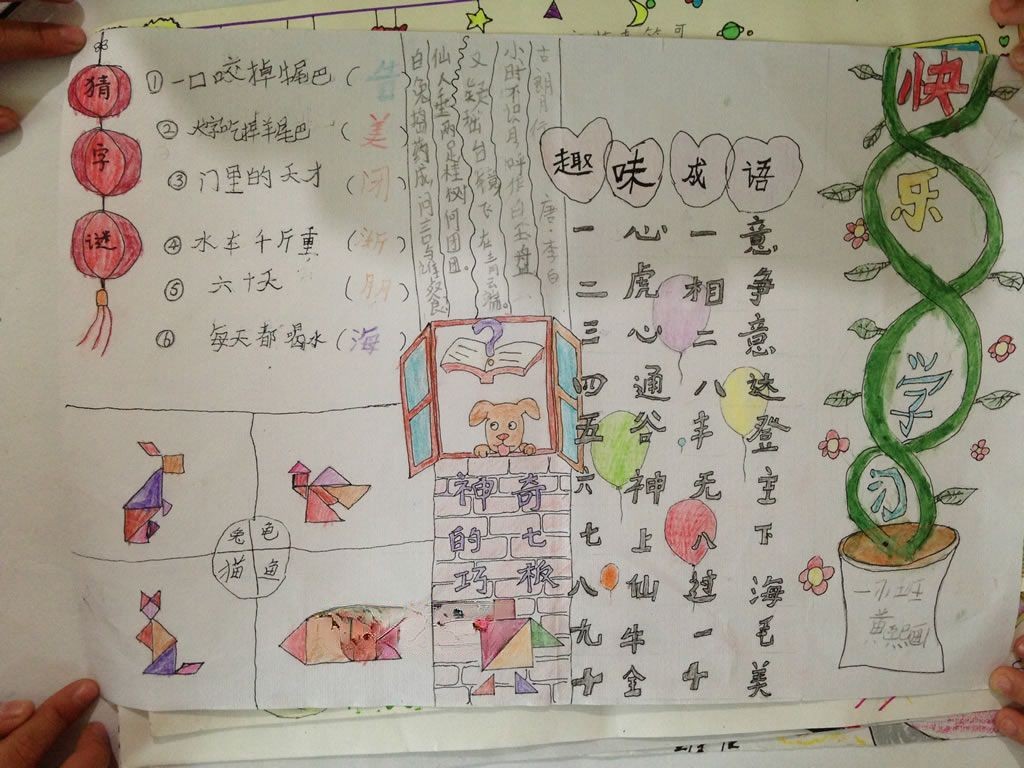 猜字谜
① 一口咬掉牛尾巴（告）
② 大字吃掉羊尾巴（美）
③ 门里的天才（闭）
④ 水车千斤重（渐）
⑤ 六十天（朋）
⑥ 每天都喝水（海）
古朗月行 唐·李白
小时不识月，呼作白玉盘
又疑瑶台镜飞在青云端。
仙人垂两足桂树何团团。
白兔捣药成问言与谁餐
趣味成语
一心一意
二虎相争
三心二意
四通八达
五谷丰登
六神无主
七上八下
八仙过海
九牛一毛
十全十美
快乐学习
?
兔色
猫鱼
神奇
的七
巧板